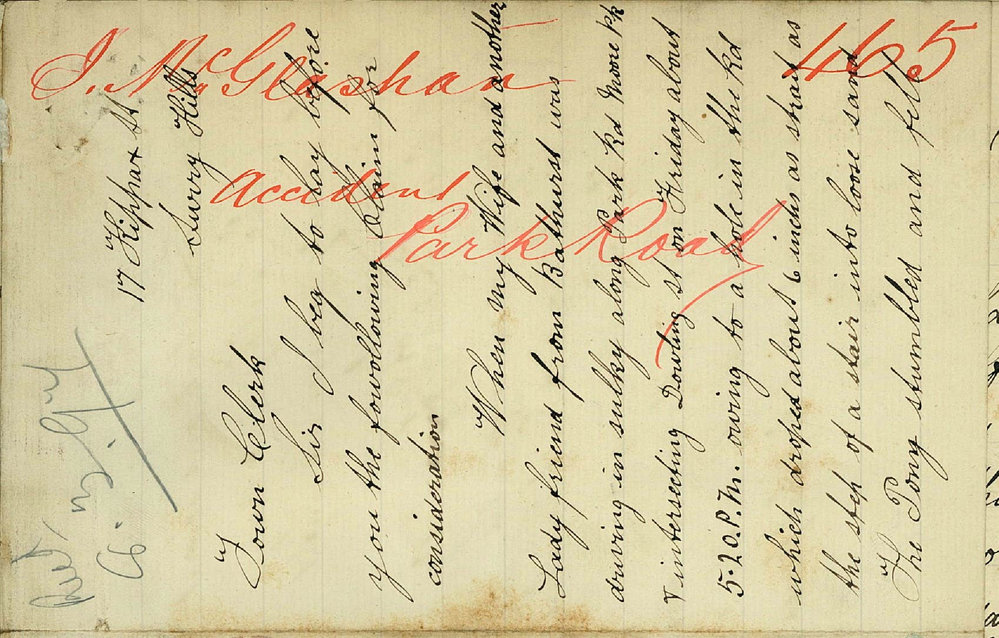 J. McGlashan 465
Accident
Park Road
17 Kippax St
Surry Hills
Town Clerk
Sir I beg to lay before
you the fowollowing Claim for
consideration
When my Wife and another
Lady friend from Bathurst was
driving in sulky along Park Rd Moore Pk
& intersecting Dowling St on Friday about
5.20. P.M. owing to a hole in the Rd
which droped about 6 inchs as strat as
the step of a stair into loose sand
The Pony stumbled and fell